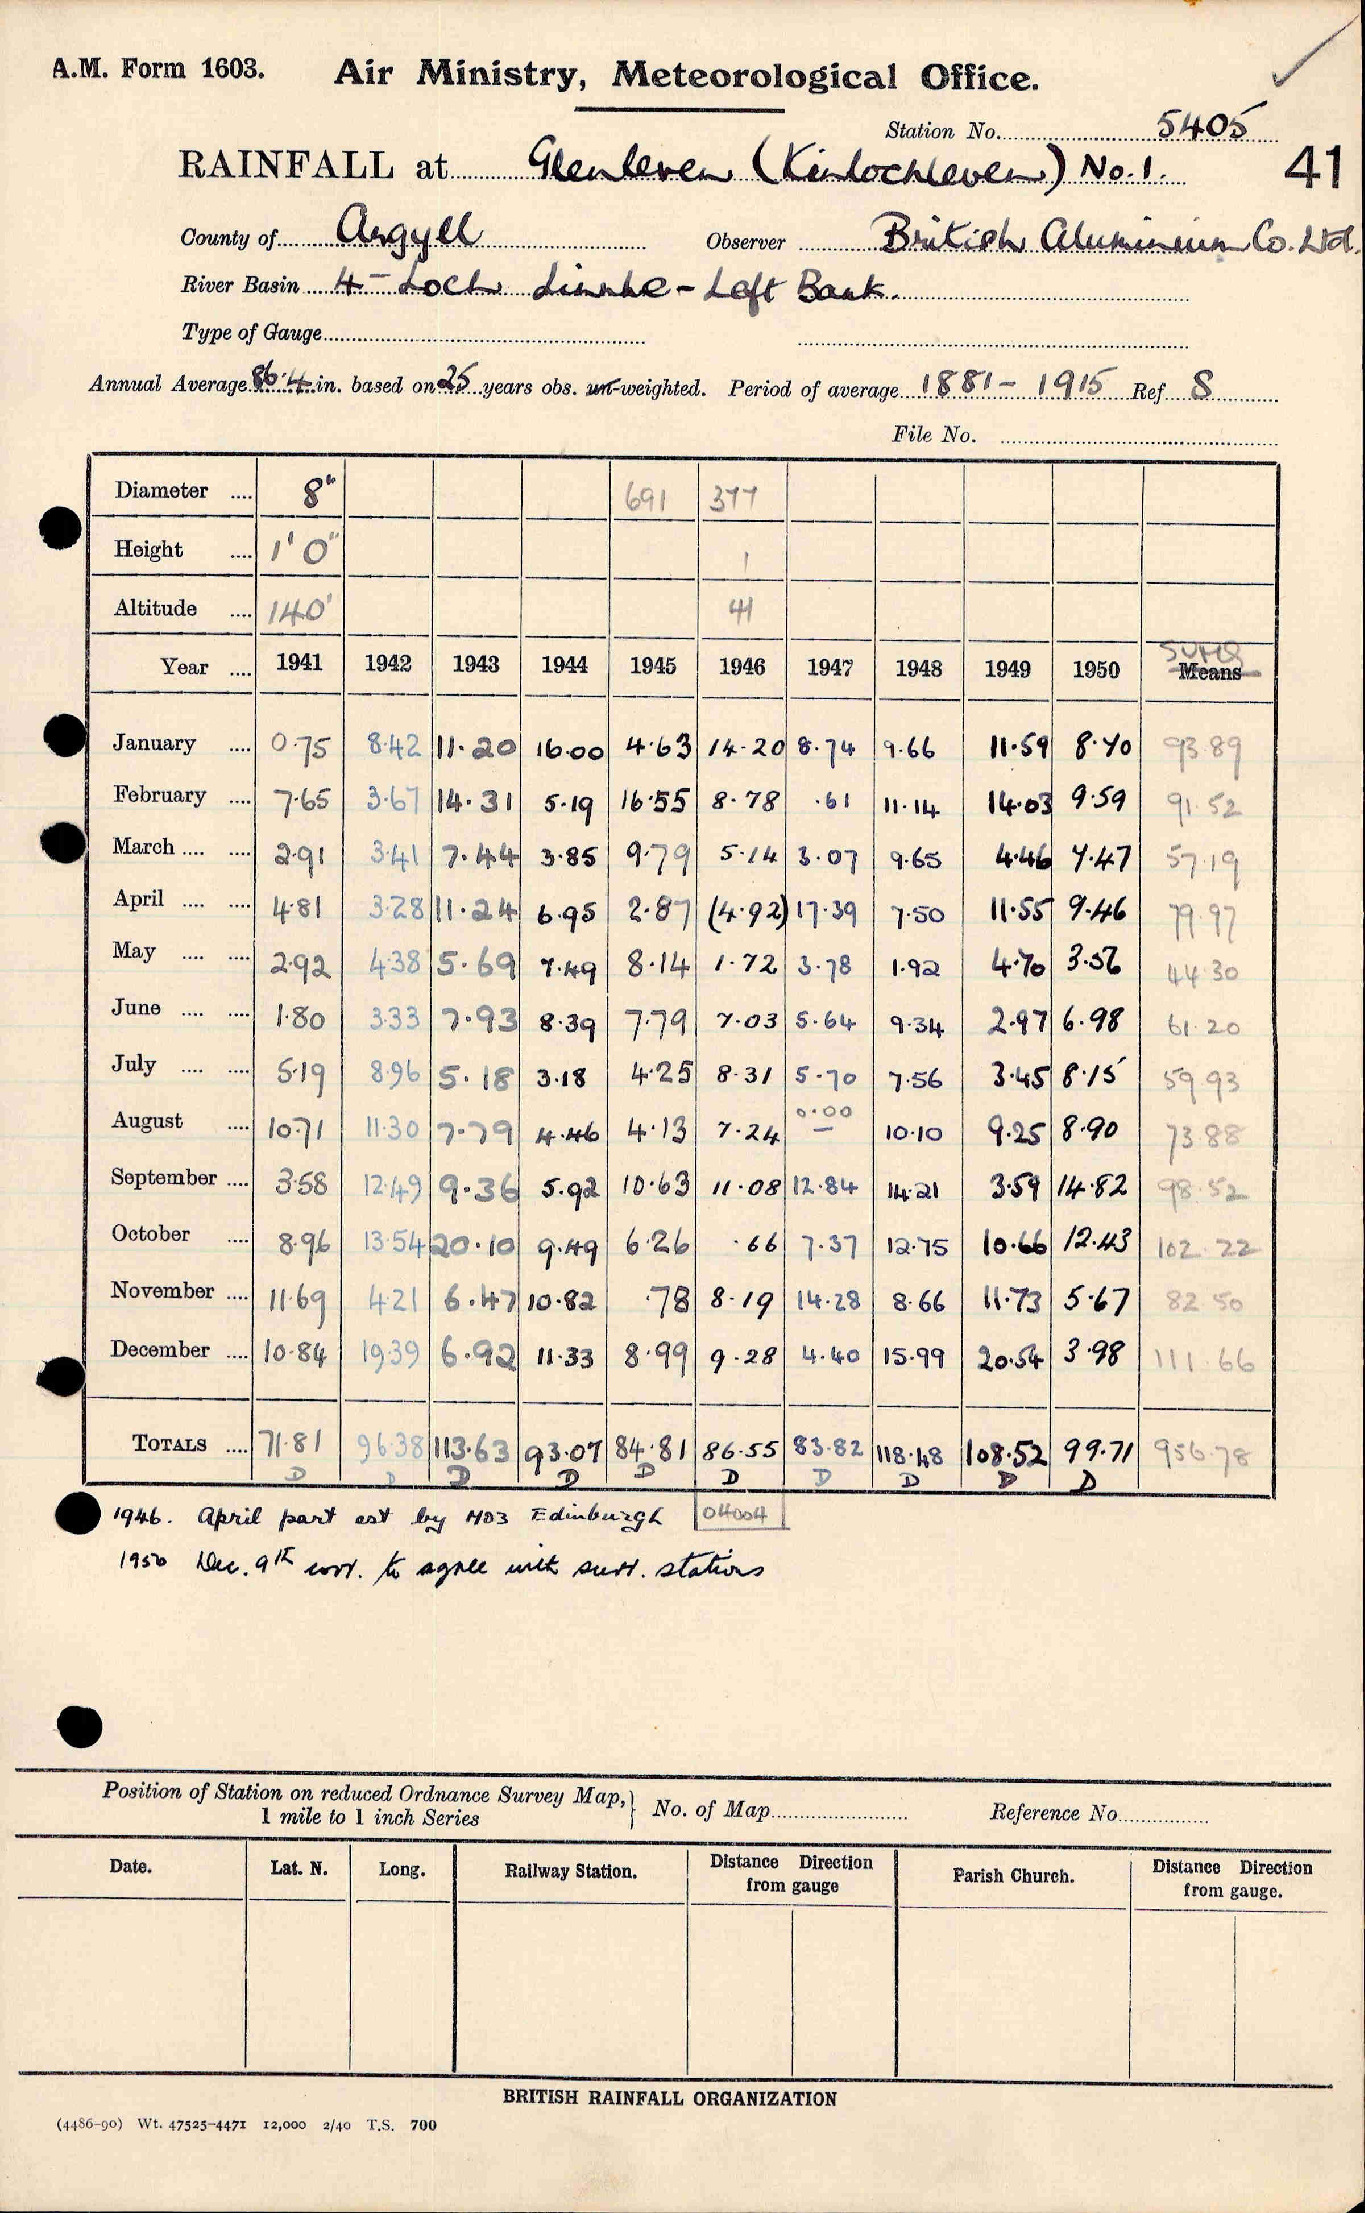 A.M. Form 1603. Air Ministry, Meteorological Office.
Station No. 5405
RAINFALL at Glenleven (Kinlochleven) No.1. 41
County of Argyll Observer British Aluminium Co. Ltd.
River Basin 4 - Loch Linnhe - Left Bank.
Type of Gauge
Annual Average 86.4 in. based on 25 years obs. un-weighted. Period of average 1881 - 1915 Ref S
File No.
Diameter .... 8" 691 377
Height .... 1' 0" 1
Altitude .... 140' 41
Year .... 1941 1942 1943 1944 1945 1946 1947 1948 1949 1950 SUMS Means
January .... 0.75 8.42 11.20 16.00 4.63 14.20 8.74 9.66 11.59 8.70 93.89
February .... 7.65 3.67 14.31 5.19 16.55 8.78 .61 11.14 14.03 9.59 91.52
March .... .... 2.91 3.41 7.44 3.85 9.79 5.14 3.07 9.65 4.46 7.47 57.19
April .... .... 4.81 3.28 11.24 6.95 2.87 (4.92) 17.39 7.50 11.55 9.46 79.97
May .... .... 2.92 4.38 5.69 7.49 8.14 1.72 3.78 1.92 4.70 3.56 44.30
June .... .... 1.80 3.33 7.93 8.39 7.79 7.03 5.64 9.34 2.97 6.98 61.20
July .... .... 5.19 8.96 5.18 3.18 4.25 8.31 5.70 7.56 3.45 8.15 59.93
August .... 10.71 11.30 7.79 4.46 4.13 7.24 0.00 — 10.10 9.25 8.90 73.88
September .... 3.58 12.49 9.36 5.92 10.63 11.08 12.84 14.21 3.59 14.82 98.52
October .... 8.96 13.54 20.10 9.49 6.26 .66 7.37 12.75 10.66 12.43 102.22
November .... 11.69 4.21 6.47 10.82 .78 8.19 14.28 8.66 11.73 5.67 82.50
December .... 10.84 19.39 6.92 11.33 8.99 9.28 4.40 15.99 20.54 3.98 111.66
TOTALS .... 71.81 96.38 113.63 93.07 84.81 86.55 83.82 118.48 108.52 99.71 956.78
D D D D D D D D D D
1946. April part est by MO3 Edinburgh 04004
1950 Dec. 9th corr. to agree with surr. stations
Position of Station on reduced Ordnance Survey Map, 1 mile to 1 inch Series } No. of Map Reference No.
Date. Lat. N. Long. Railway Station. Distance Direction from gauge Parish Church. Distance Direction from gauge.
BRITISH RAINFALL ORGANIZATION
(4486-90) Wt. 47525-4471 12,000 2/40 T.S. 700